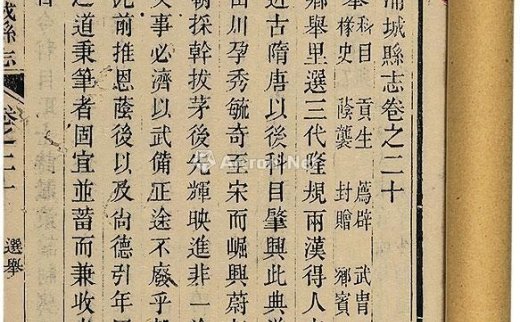 浦城縣志卷之二十
舉 科目 貢生 薦辟 武冑
掾史 蔭襲 封贈 鄉賓
鄉舉里選三代隆規兩漢得人
近古隋唐以後科目肇興此典
山川孕秀毓奇至宋而崛興蔚
朝採幹拔茅後先輝映進非一
文事必濟以武備正途不廢乎
此前推恩蔭後以及尚德引年
之道秉筆者固宜並蓄而兼收
城縣志 卷之二十 選舉